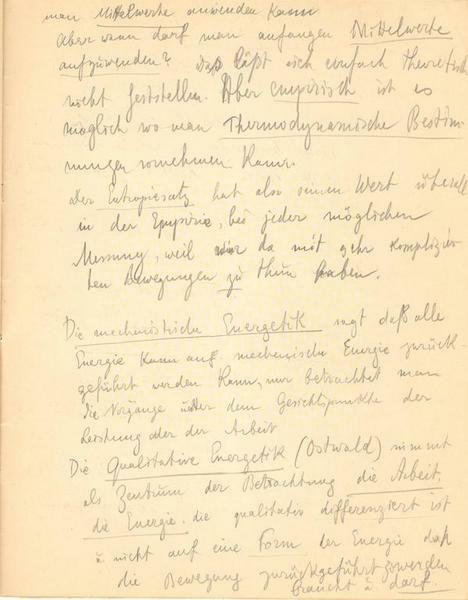 man Mittelwerte anwenden kann
Aber wann darf man anfangen Mittelwerte
aufzuwenden? Das läßt sich einfach theoretisch
nicht feststellen. Aber empirisch ist es
möglich wo man Thermodynamische Bestim
mungen vornehmen kann.
Der Entropiesatz hat also seinen Wert überall
in der Empirie, bei jeder möglichen
Messung, weil wir da mit sehr komplizier
ten Bewegungen zu thun haben.
Die mechanistische Energetik sagt daß alle
Energie kann auf mechanische Energie zurück-
geführt werden kann, nur betrachtet man
die Vorgänge unter dem Gesichtspunkte der
Leistung oder der Arbeit
Die Qualitative Energetik (Ostwald) nimmt
als Zentrum der Betrachtung die Arbeit,
die Energie, die qualitativ differenziert ist
u nicht auf eine Form der Energie daß
die Bewegung zurückgeführt zu werden
braucht u darf.